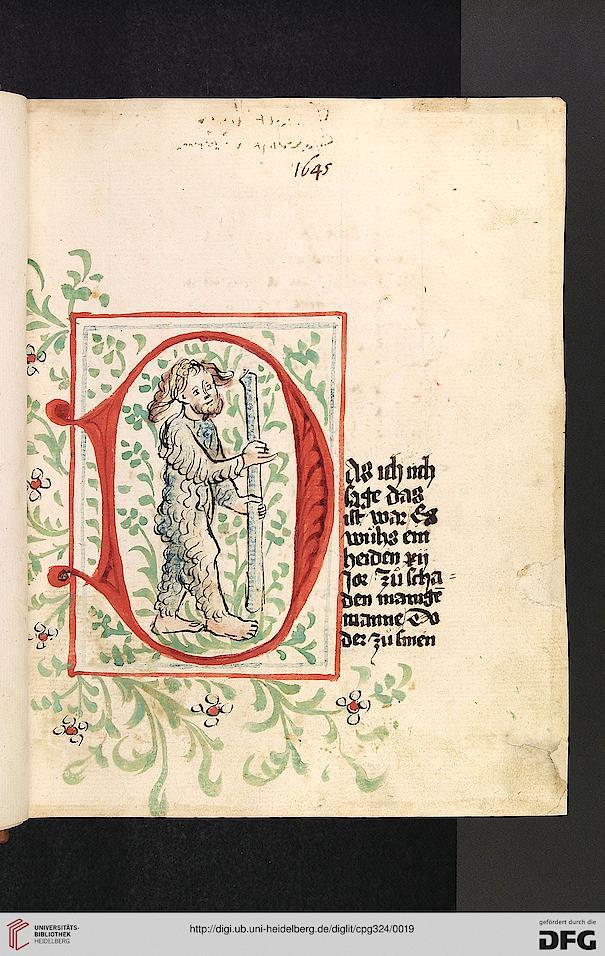 1645
D
As ich üch
sage das
ist war Es
wuͦhs ein
heiden xij
Jor / zuͦ scha=
den manige
manne Do
der zuͦ sinen
UNIVERSITÄTS-
BIBLIOTHEK
HEIDELBERG
http://digi.ub.uni-heidelberg.de/diglit/cpg324/0019
gefördert durch die
DFG